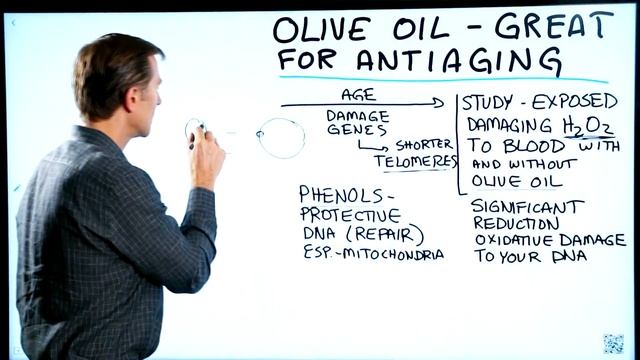 OLIVE OIL - GREAT
FOR ANTIAGING
AGE
DAMAGE
GENES
SHORTER
TELOMERES
PHENOLS-
PROTECTIVE
DNA (REPAIR)
ESP.-MITOCHONDRIA
STUDY - EXPOSED
DAMAGING H2O2
TO BLOOD WITH
AND WITHOUT
OLIVE OIL
SIGNIFICANT
REDUCTION
OXIDATIVE DAMAGE
TO YOUR DNA